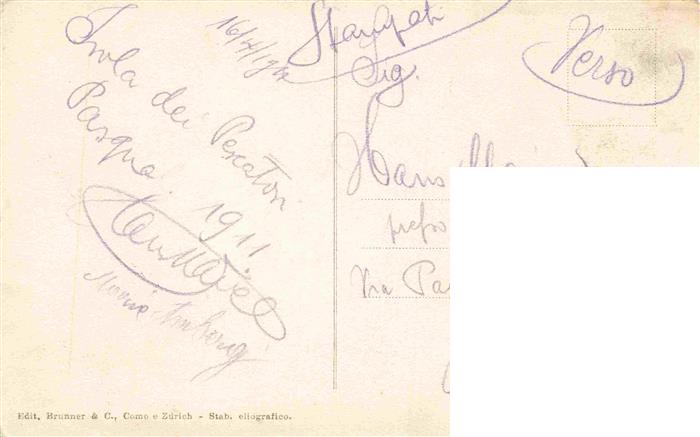 16/4/911
Isola dei Pescatori
Pasqua 1911
Stampati
Sig.
Verso
Hans
presso
Via Pa
Edit. Brunner & C., Como e Zürich - Stab. eliografico.